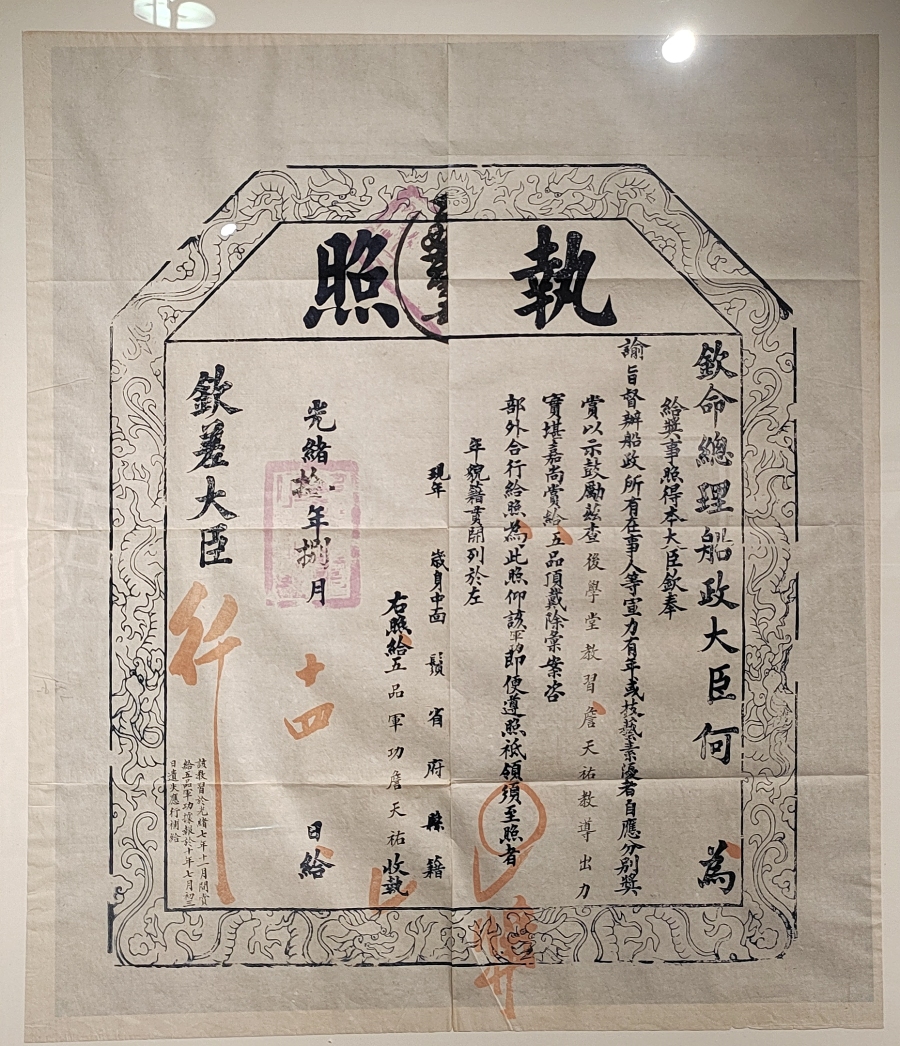 執照
欽命總理船政大臣何 為
給獎事照得本大臣欽奉
諭旨督辦船政所有在事人等宣力有年或技藝素優者自應分別獎
賞以示鼓勵茲查後學堂教習詹天祐教導出力
實堪嘉尚賞給五品頂戴除彙案咨
部外合行給照為此照仰該軍功即便遵照祗領須至照者
年貌籍貫開列於左
現年 歲身中面 鬚 省 府 縣 籍
右照給五品軍功詹天祐 收執
光緒拾年捌月 十四 日給
欽差大臣
行
該教習於光緒七年十一月間賞
給五品軍功據報於十年七月初三
日遺失應行補給